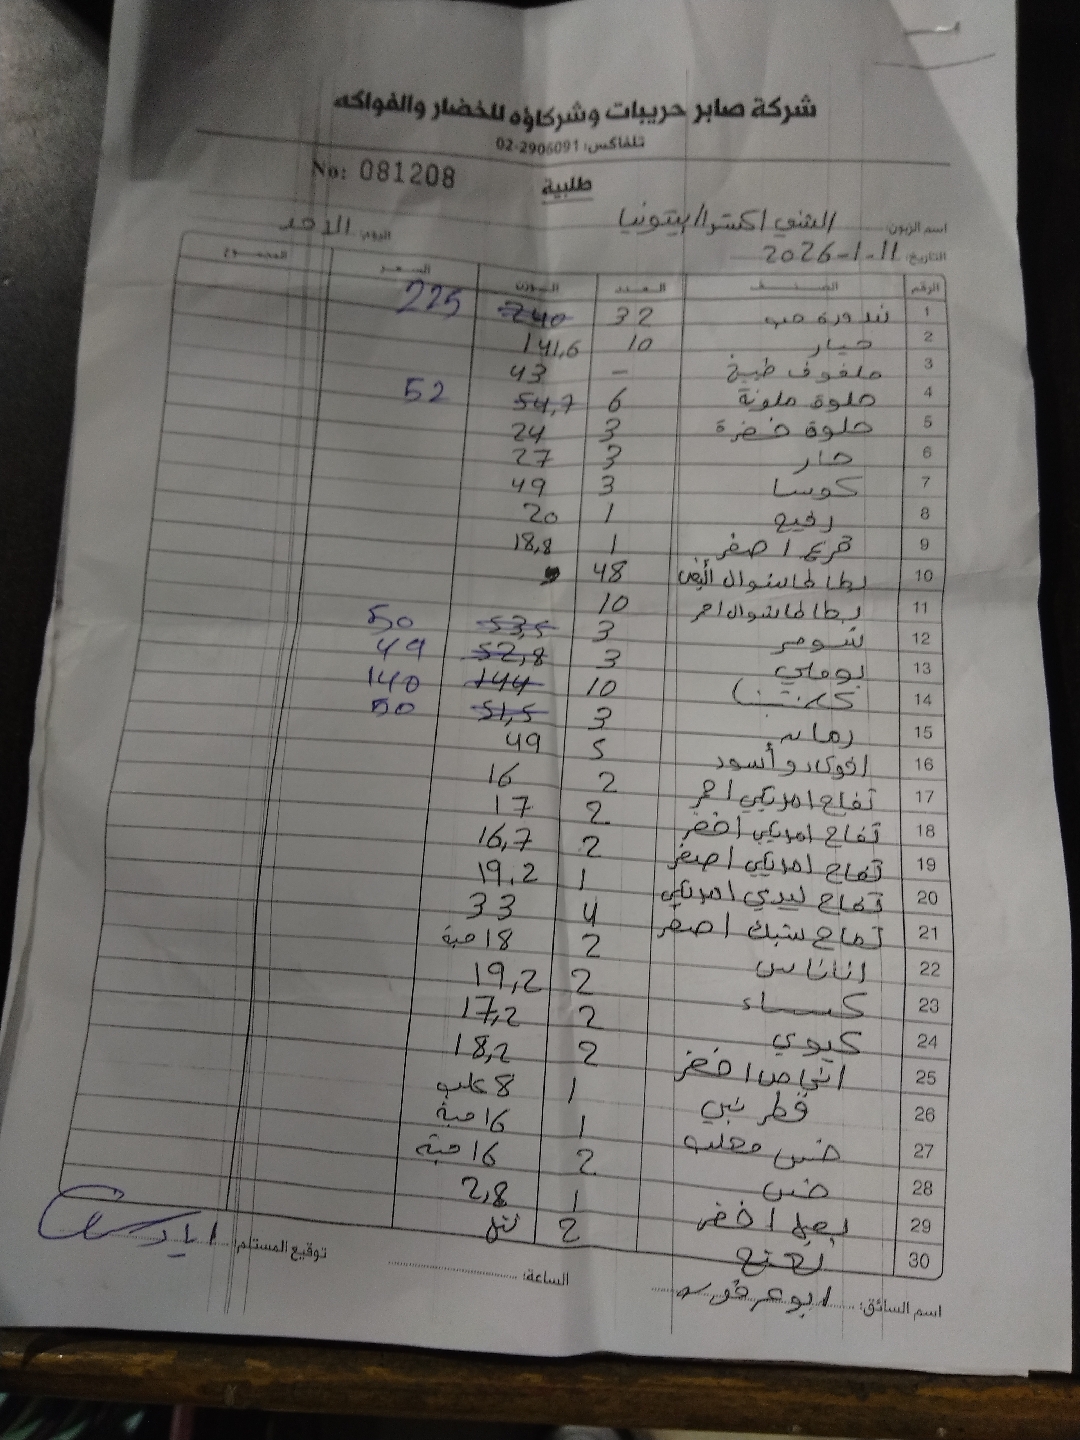 شركة صابر حريبات وشركاؤه للخضار والفواكه
تلفاكس: 02-2906091
No: 081208
طلبية
اسم الزبون: الشني اكسترا / بيتونيا اليوم: الاحد
التاريخ: 11-1-2026
الرقم الصنف العدد الوزن السعر المجموع
1 بندورة حب 32 240 225
2 خيار 10 141,6
3 ملفوف طبيخ - 43
4 حلوة ملونة 6 54,7 52
5 حلوة خضرة 3 24
6 حار 3 27
7 كوسا 3 49
8 رفيع 1 20
9 قرع اصفر 1 18,8
10 بطاطا شوال أبيض 48
11 بطاطا شوال احمر 10
12 شومر 3 53,5 50
13 بوملي 3 52,8 49
14 كلمنتينا 10 144 140
15 رمان 3 51,5 50
16 افوكادو أسود 5 49
17 تفاح امريكي احمر 2 16
18 تفاح امريكي اخضر 2 17
19 تفاح امريكي اصفر 2 16,7
20 تفاح ليدي امريكي 1 19,2
21 تفاح ستيك اصفر 4 33
22 اناناس 2 18 حبة
23 2 19,2
24 كيوي 2 17,2
25 انجاص اخضر 2 18,2
26 فطر بني 1 8 علب
27 خس معلب 1 16 حبة
28 خس 2 16 حبة
29 بصل اخضر 1 2,8
30 نعنع 2
اسم السائق: ابو عرقوب الساعة: توقيع المستلم: اياد